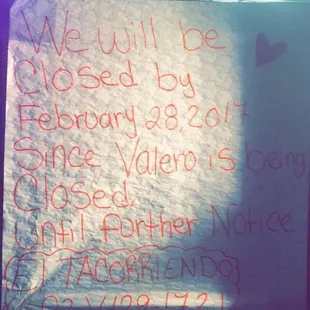 We will be
Closed by
February 28, 2017
Since Valero is being
Closed.
Until further Notice
El TACORRIENDO